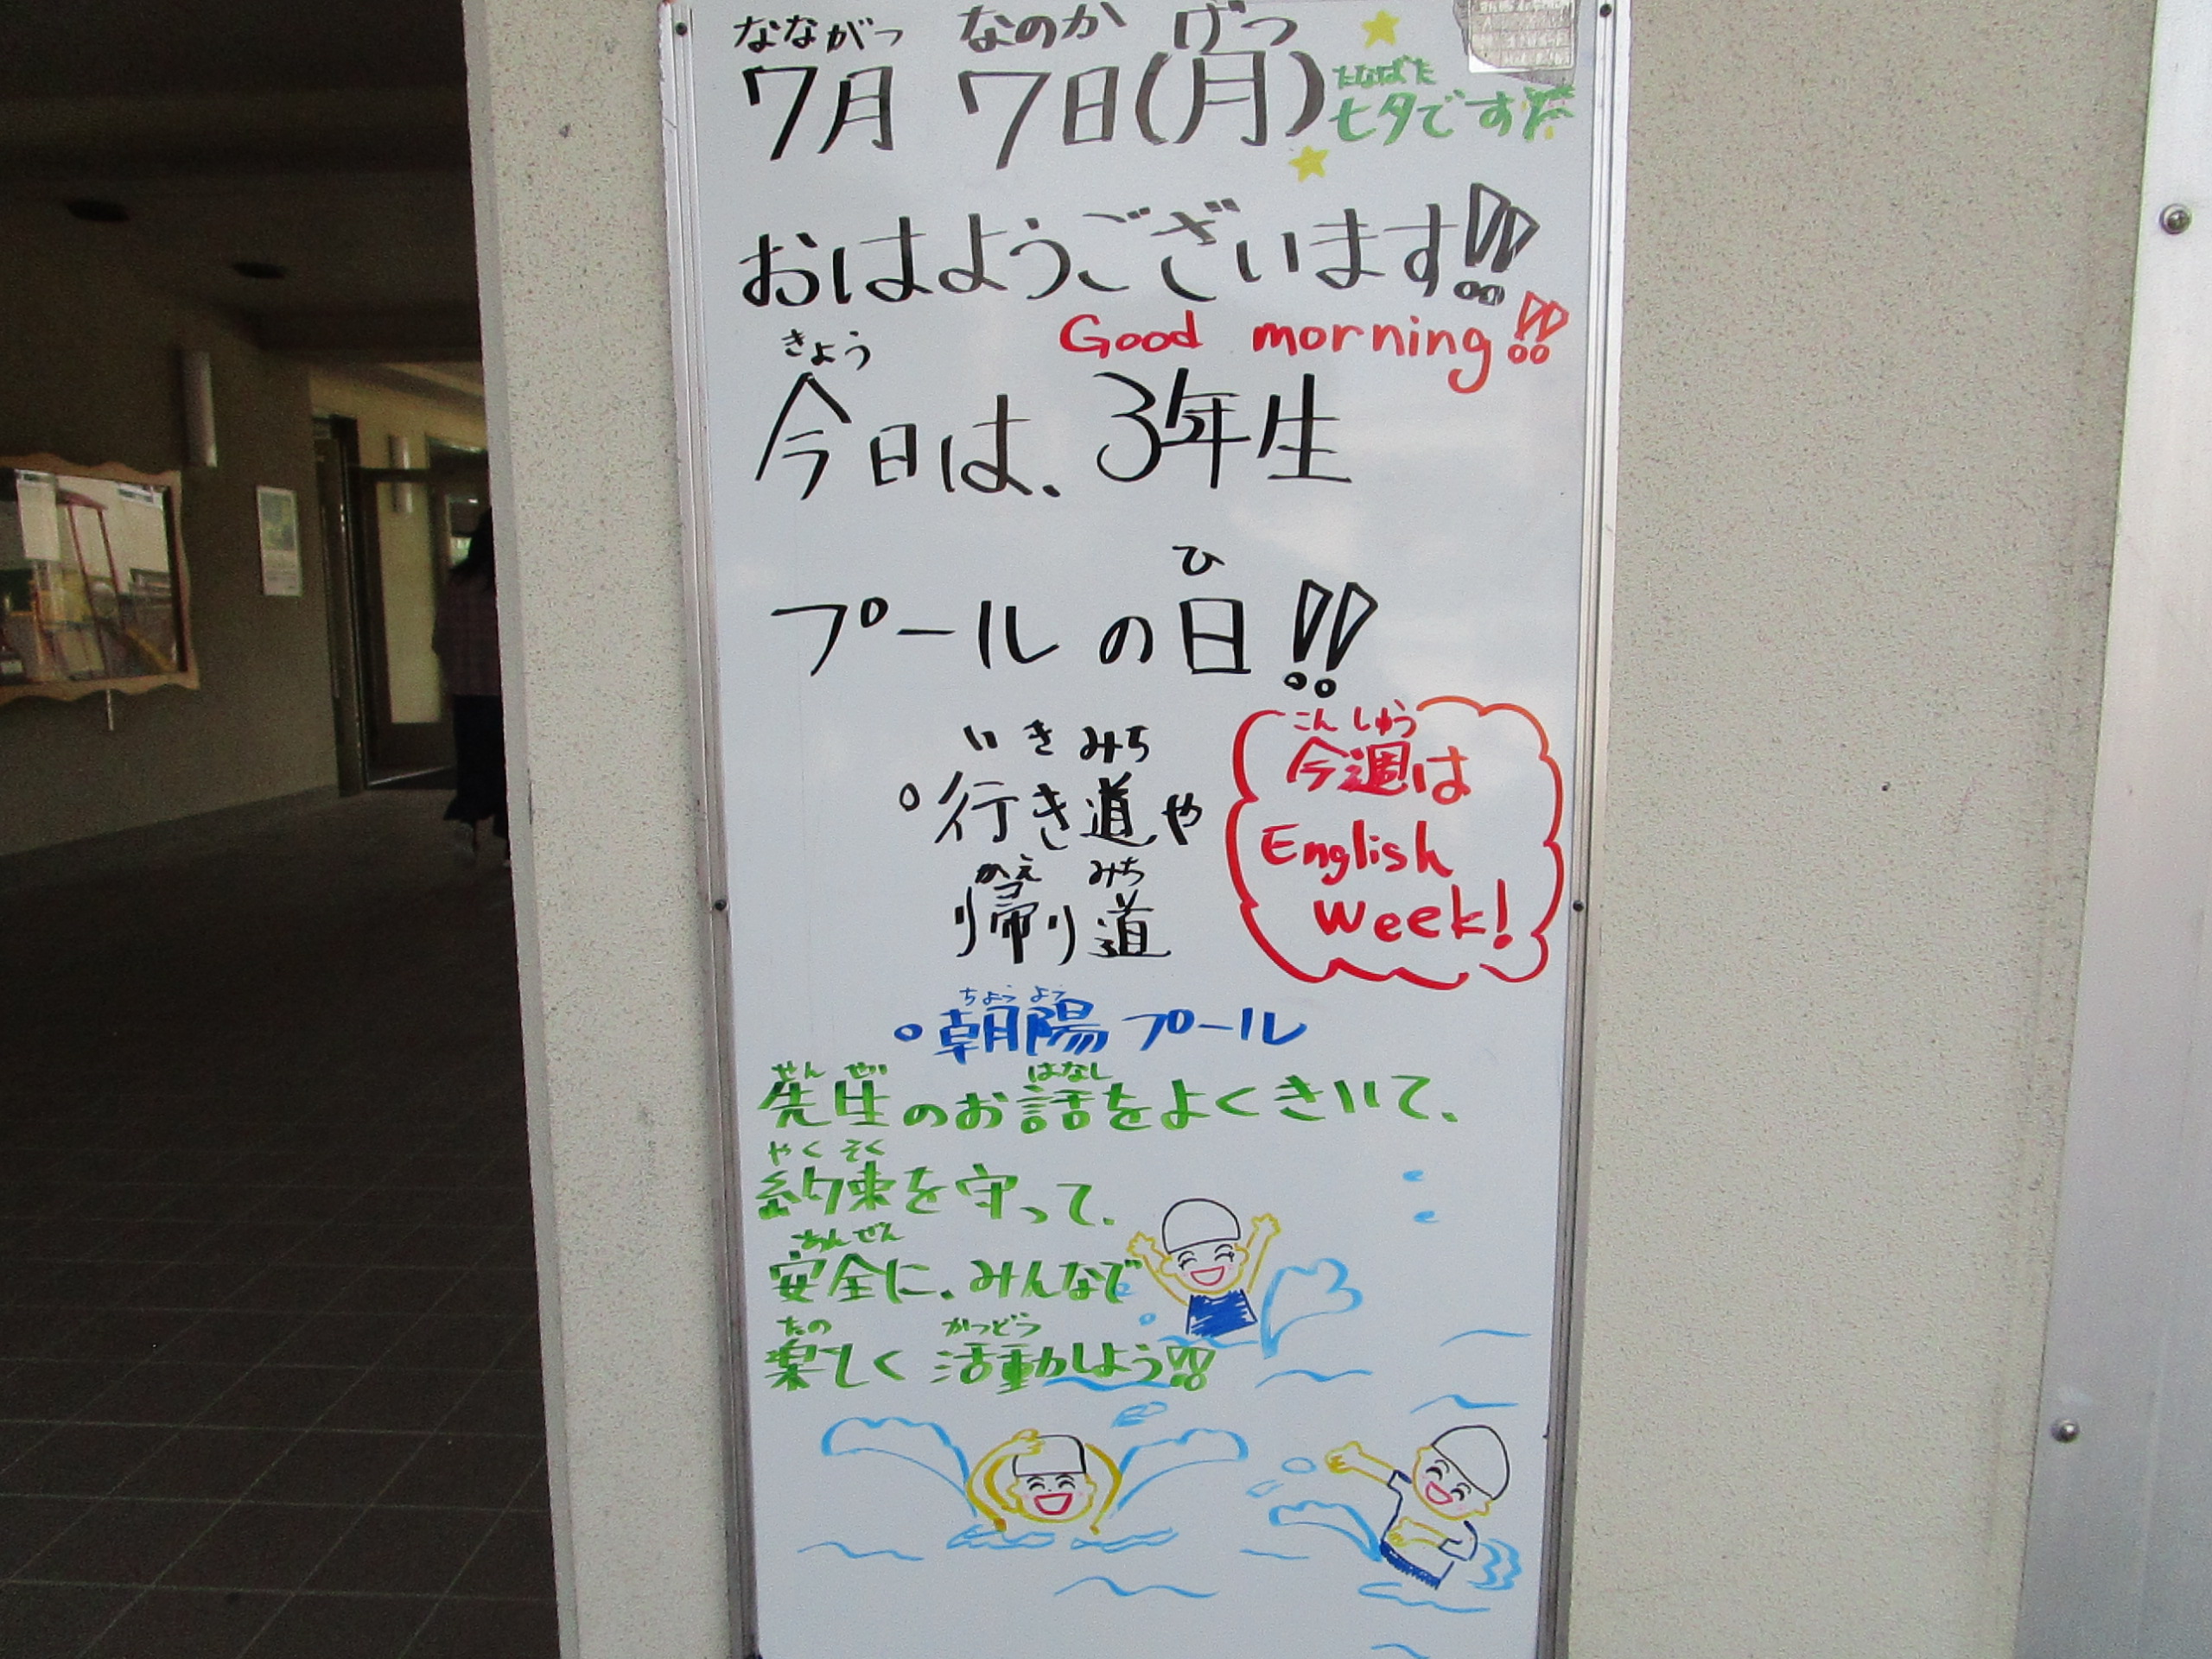 なながつ なのか げつ
7月 7日(月)
たなばた
七夕です
おはようございます!!
Good morning!!
きょう
今日は、3年生
ひ
プールの日!!
いきみち
・行き道や
かえ みち
帰り道
こんしゅう
今週は
English
Week!
ちょうよう
・朝陽プール
せんせい はなし
先生のお話をよくきいて、
やくそく
約束を守って、
あんぜん
安全に、みんなで
たの かつどう
楽しく活動しよう!!